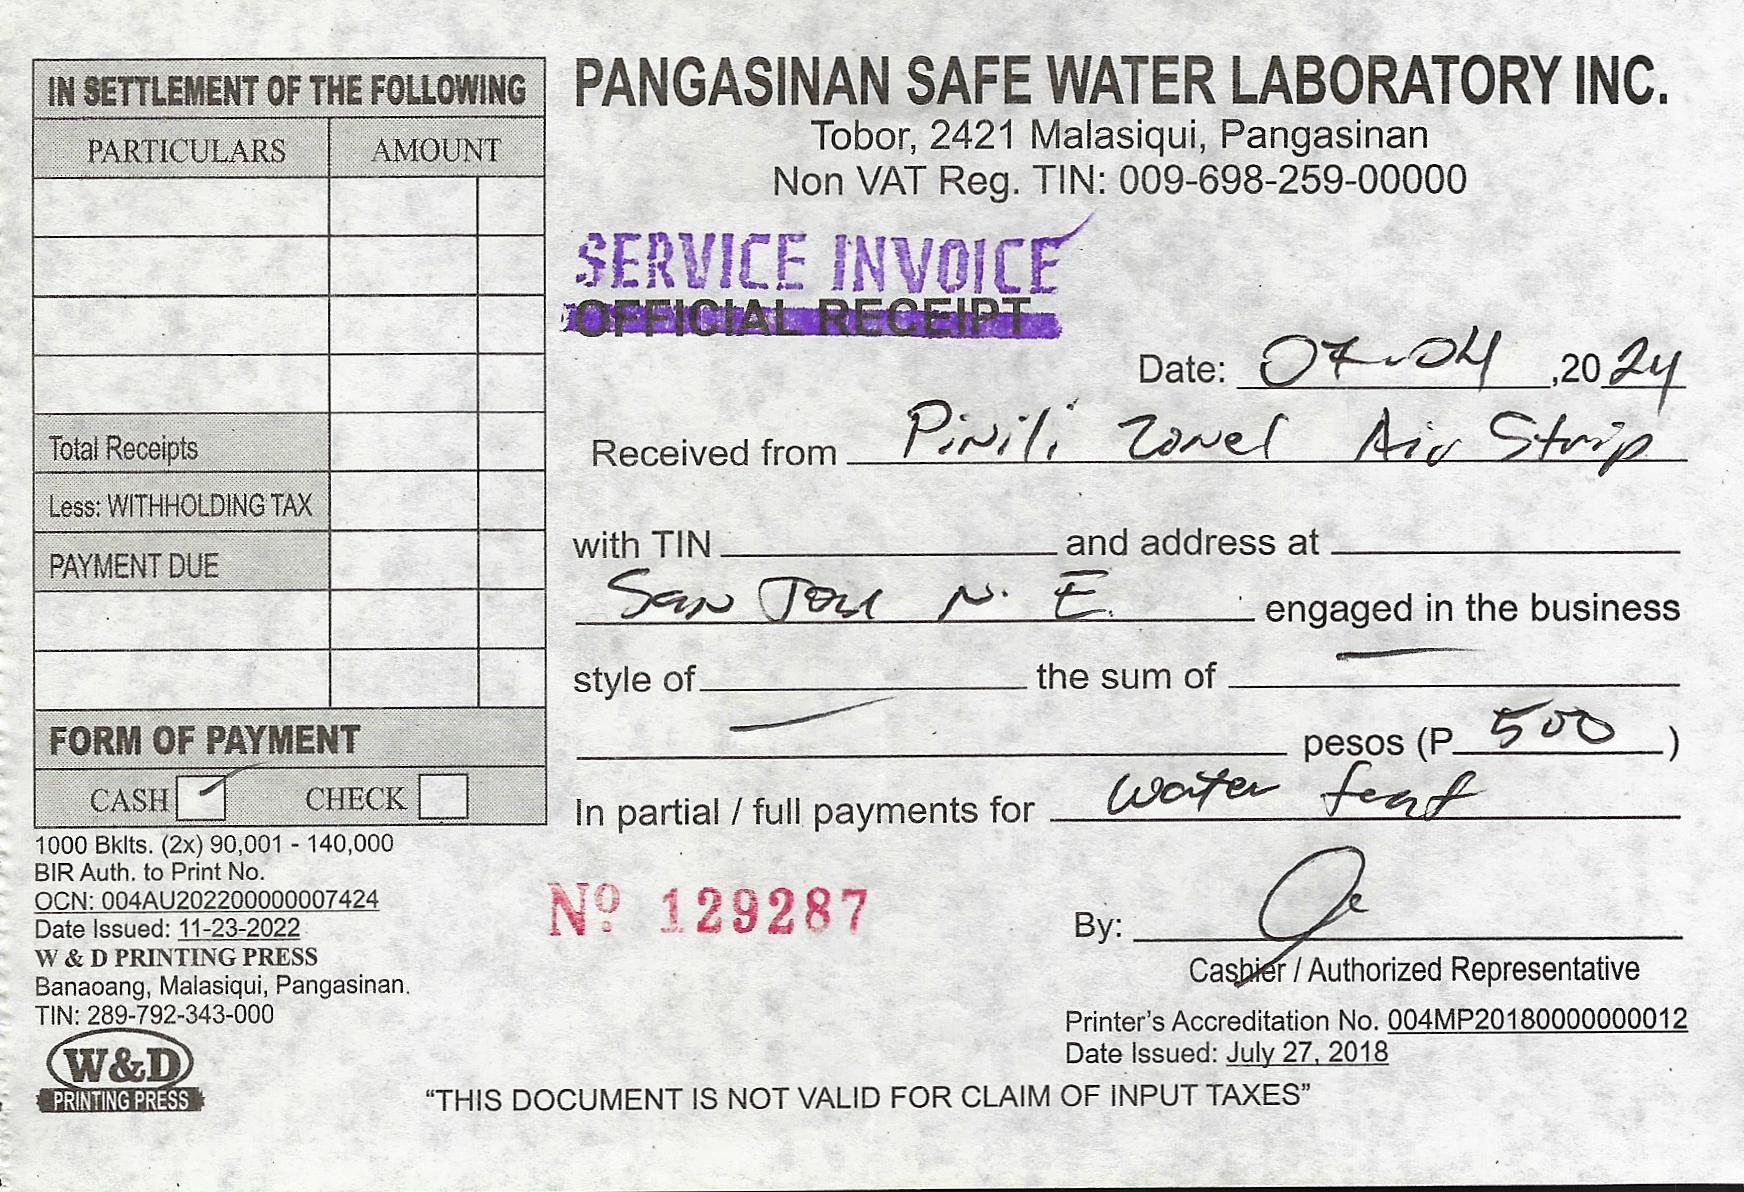 IN SETTLEMENT OF THE FOLLOWING
PARTICULARS AMOUNT
Total Receipts
Less: WITHHOLDING TAX
PAYMENT DUE
FORM OF PAYMENT
CASH CHECK
1000 Bklts. (2x) 90,001 - 140,000
BIR Auth. to Print No.
OCN: 004AU202200000007424
Date Issued: 11-23-2022
W & D PRINTING PRESS
Banaoang, Malasiqui, Pangasinan.
TIN: 289-792-343-000
W&D
PRINTING PRESS
PANGASINAN SAFE WATER LABORATORY INC.
Tobor, 2421 Malasiqui, Pangasinan
Non VAT Reg. TIN: 009-698-259-00000
SERVICE INVOICE
OFFICIAL RECEIPT
Date: 07-04 ,2024
Received from Pinili Air Strip
with TIN and address at
San Jose N. E. engaged in the business
style of the sum of
pesos (P 500 )
In partial / full payments for water
No 129287
By:
Cashier / Authorized Representative
Printer's Accreditation No. 004MP20180000000012
Date Issued: July 27, 2018
"THIS DOCUMENT IS NOT VALID FOR CLAIM OF INPUT TAXES"